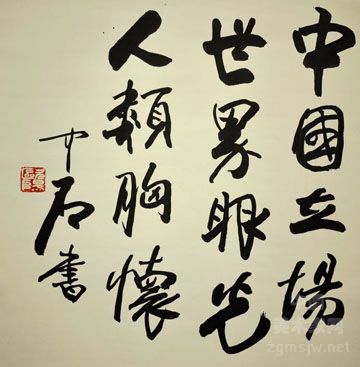 中國立場
世界眼光
人類胸懷
中石書
美术家网
zgmsjw.net